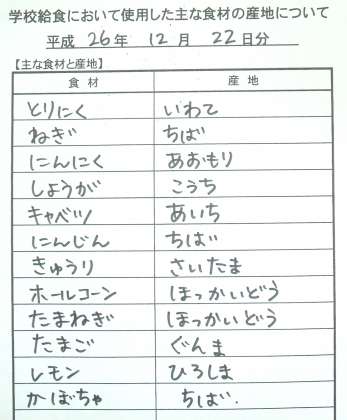 学校給食において使用した主な食材の産地について
平成 26 年 12 月 22 日分
【主な食材と産地】
食材 産地
とりにく いわて
ねぎ ちば
にんにく あおもり
しょうが こうち
キャベツ あいち
にんじん ちば
きゅうり さいたま
ホールコーン ほっかいどう
たまねぎ ほっかいどう
たまご ぐんま
レモン ひろしま
かぼちゃ ちば.